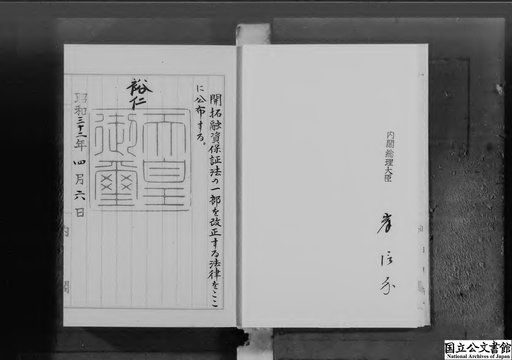 開拓融資保証法の一部を改正する法律をここ
に公布する。
裕仁
天皇
御璽
昭和三十二年四月六日
内閣総理大臣
岸信介
国立公文書館
National Archives of Japan